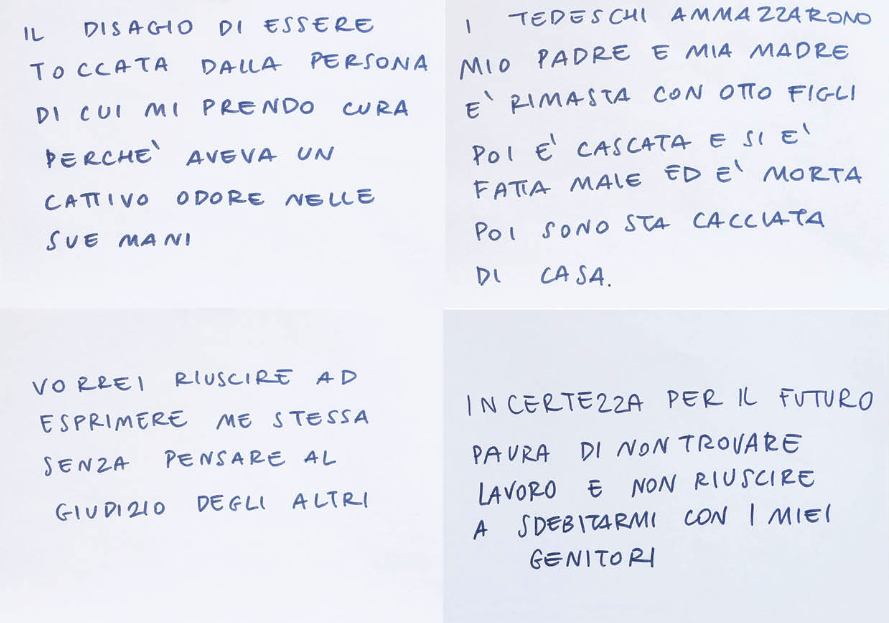 IL DISAGIO DI ESSERE
TOCCATA DALLA PERSONA
DI CUI MI PRENDO CURA
PERCHE' AVEVA UN
CATTIVO ODORE NELLE
SUE MANI
I TEDESCHI AMMAZZARONO
MIO PADRE E MIA MADRE
E' RIMASTA CON OTTO FIGLI
POI E' CASCATA E SI E'
FATTA MALE ED E' MORTA
POI SONO STA CACCIATA
DI CASA.
VORREI RIUSCIRE AD
ESPRIMERE ME STESSA
SENZA PENSARE AL
GIUDIZIO DEGLI ALTRI
INCERTEZZA PER IL FUTURO
PAURA DI NON TROVARE
LAVORO E NON RIUSCIRE
A SDEBITARMI CON I MIEI
GENITORI